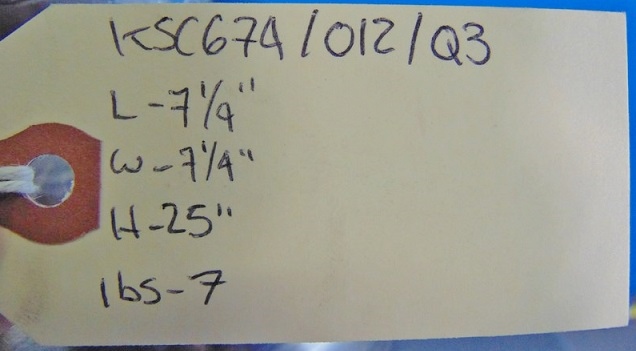 KSC674/012/Q3
L-7 1/4"
W-7 1/4"
H-25"
lbs-7